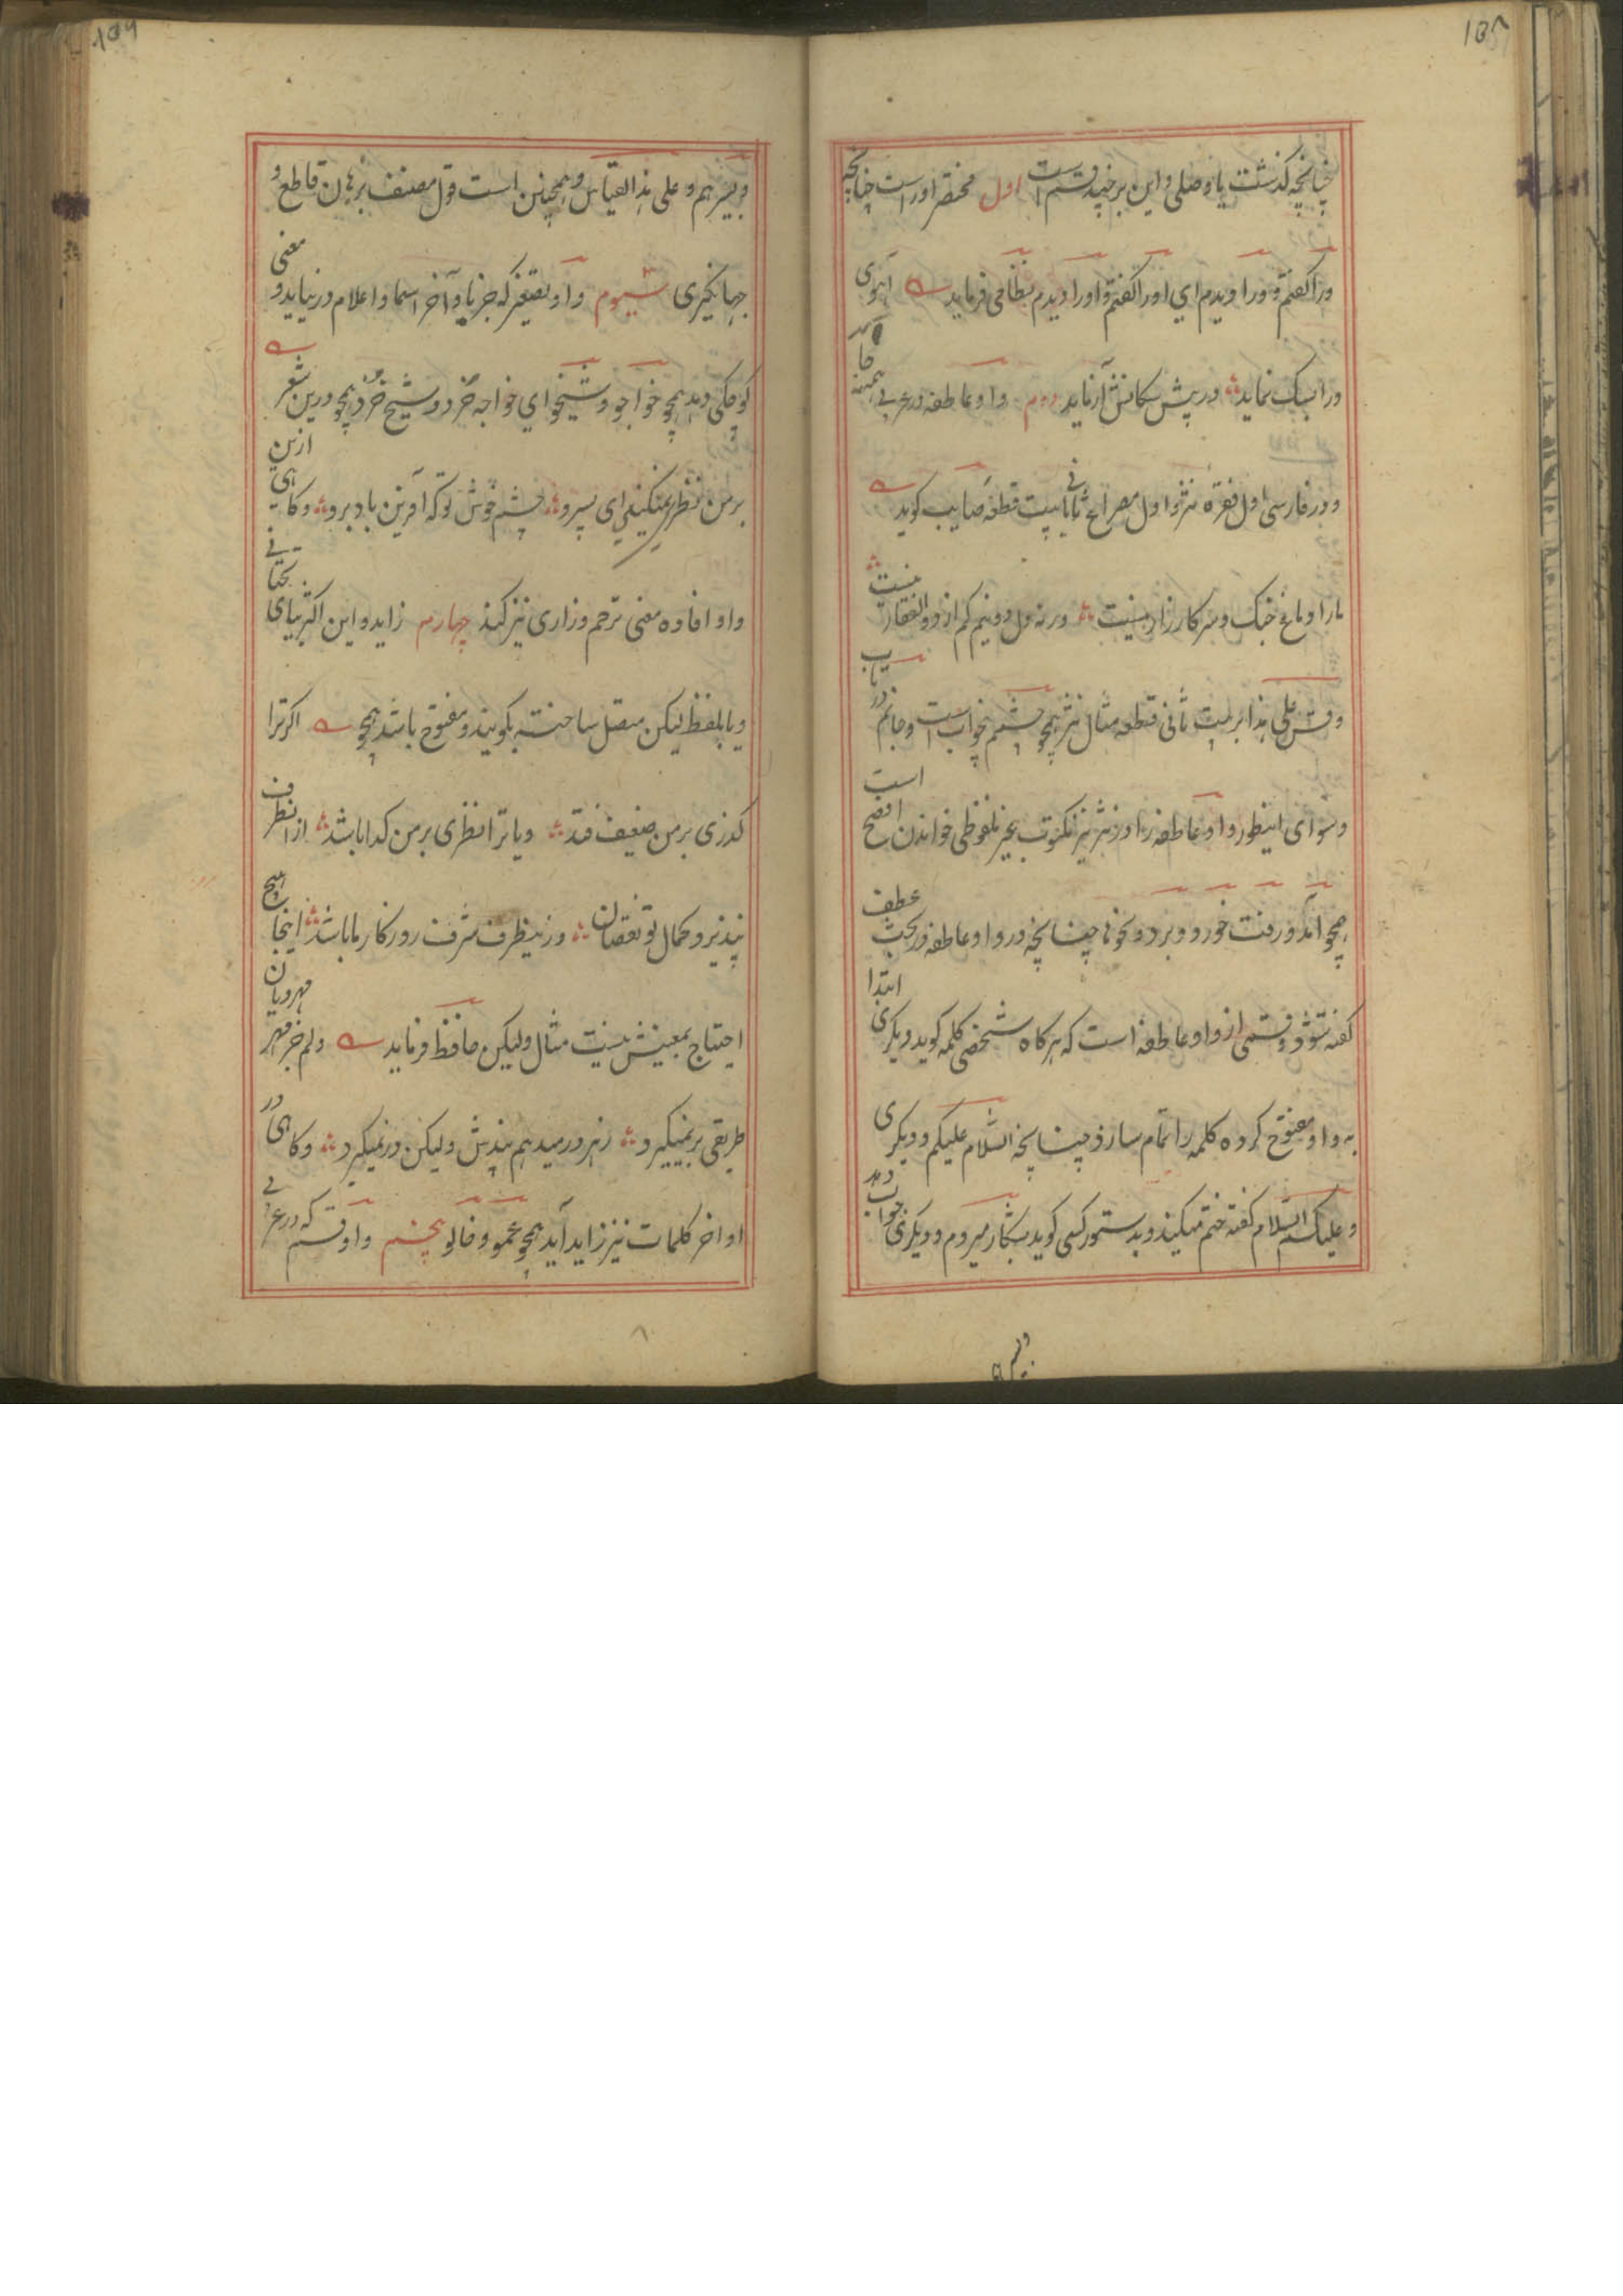 ۱۵۸
چنانچه کذشت یا وصلی و این بر چند قسم است اول مختصر او راست چنانچه
ورا کفتم و ورا دیدم ای او را کفتم و او را دیدم نظامی فرماید آهوی
ورا سبک نماید در پیش سکانش آزماید دوم واو عاطفه در عربی همه جا
و در فارسی اول فقره نثر و اول مصراع ثانی تا بیت قطعه صایب کوید
ما را دماغ جنک و سر کارزار نیست ورنه دل دو نیم کم از ذوالفقار نیست
و قس علی هذا بر بیت ثانی قطعه مثال نثر همچو چشمم بخواب است و جانم در
و سوای اینطور واو عاطفه را در نثر نیز مکتوب غیر ملفوظی خواندن افصح است
همچو آمد و رفت خورد و برد و نحو ها چنانچه در واو عاطفه در بحث عطف
کفته شود و قسمی از واو عاطفه است که هرکاه شخصی کلمه کوید دیکری ابتدا
به واو مفتوح کرده کلمه را تمام سازد چنانچه السلام علیکم و دیکری
و علیکم السلام کفته ختم میکند و بدستور کسی کوید بشکار میروم و دیکری جواب دهد
۱۵۹
و بسر هم و علی هذا القیاس و همچنین است قول مصنف برهان قاطع و
جهانکیری سیوم واو تصغیر که جز با واخر اسما و اعلام در نیاید و معنی
کوچکی دهد همچو خواجو و شیخو ای خواجه خرد و شیخ خرد همچو درین شعر
بر من نظر نمیکنی ای پسرو چشم خوش تو که آفرین باد برو و کاهی ازین
واو افاده معنی ترحم و زاری نیز کند چهارم زاید و این اکثر بیای تحتانی
و یا بلفظ لیکن متصل ساخته بکویند و مفتوح باشد همچو اکر ترا
کذری بر من ضعیف فتد و یا ترا نظری بر من کدا باشد از انطرف
نپذیرد کمال تو نقصان وزینطرف شرف روزکار ما باشد اینجا هیچ
احتیاج بمعینش نیست مثال ولیکن حافظ فرماید دلم جز مهر مهرویان
طریقی بر نمیکیرد ز هر در میدهم پندش ولیکن در نمیکیرد و کاهی در
اواخر کلمات نیز زاید آید همچو عمو و خالو پنجم واو قسم که در عربی